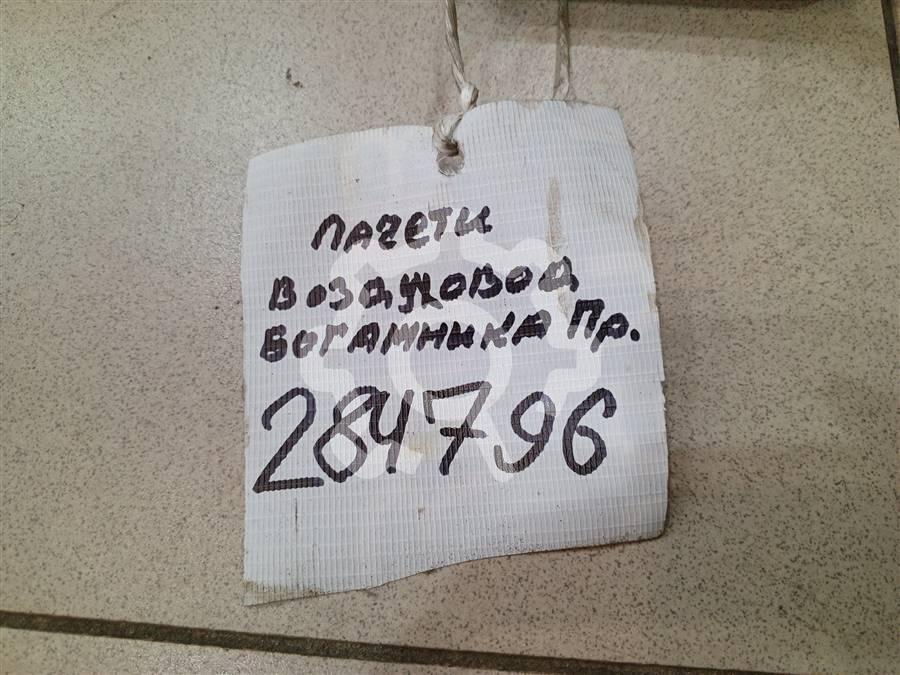 Лачети
Воздуховод
Богажника Пр.
284796